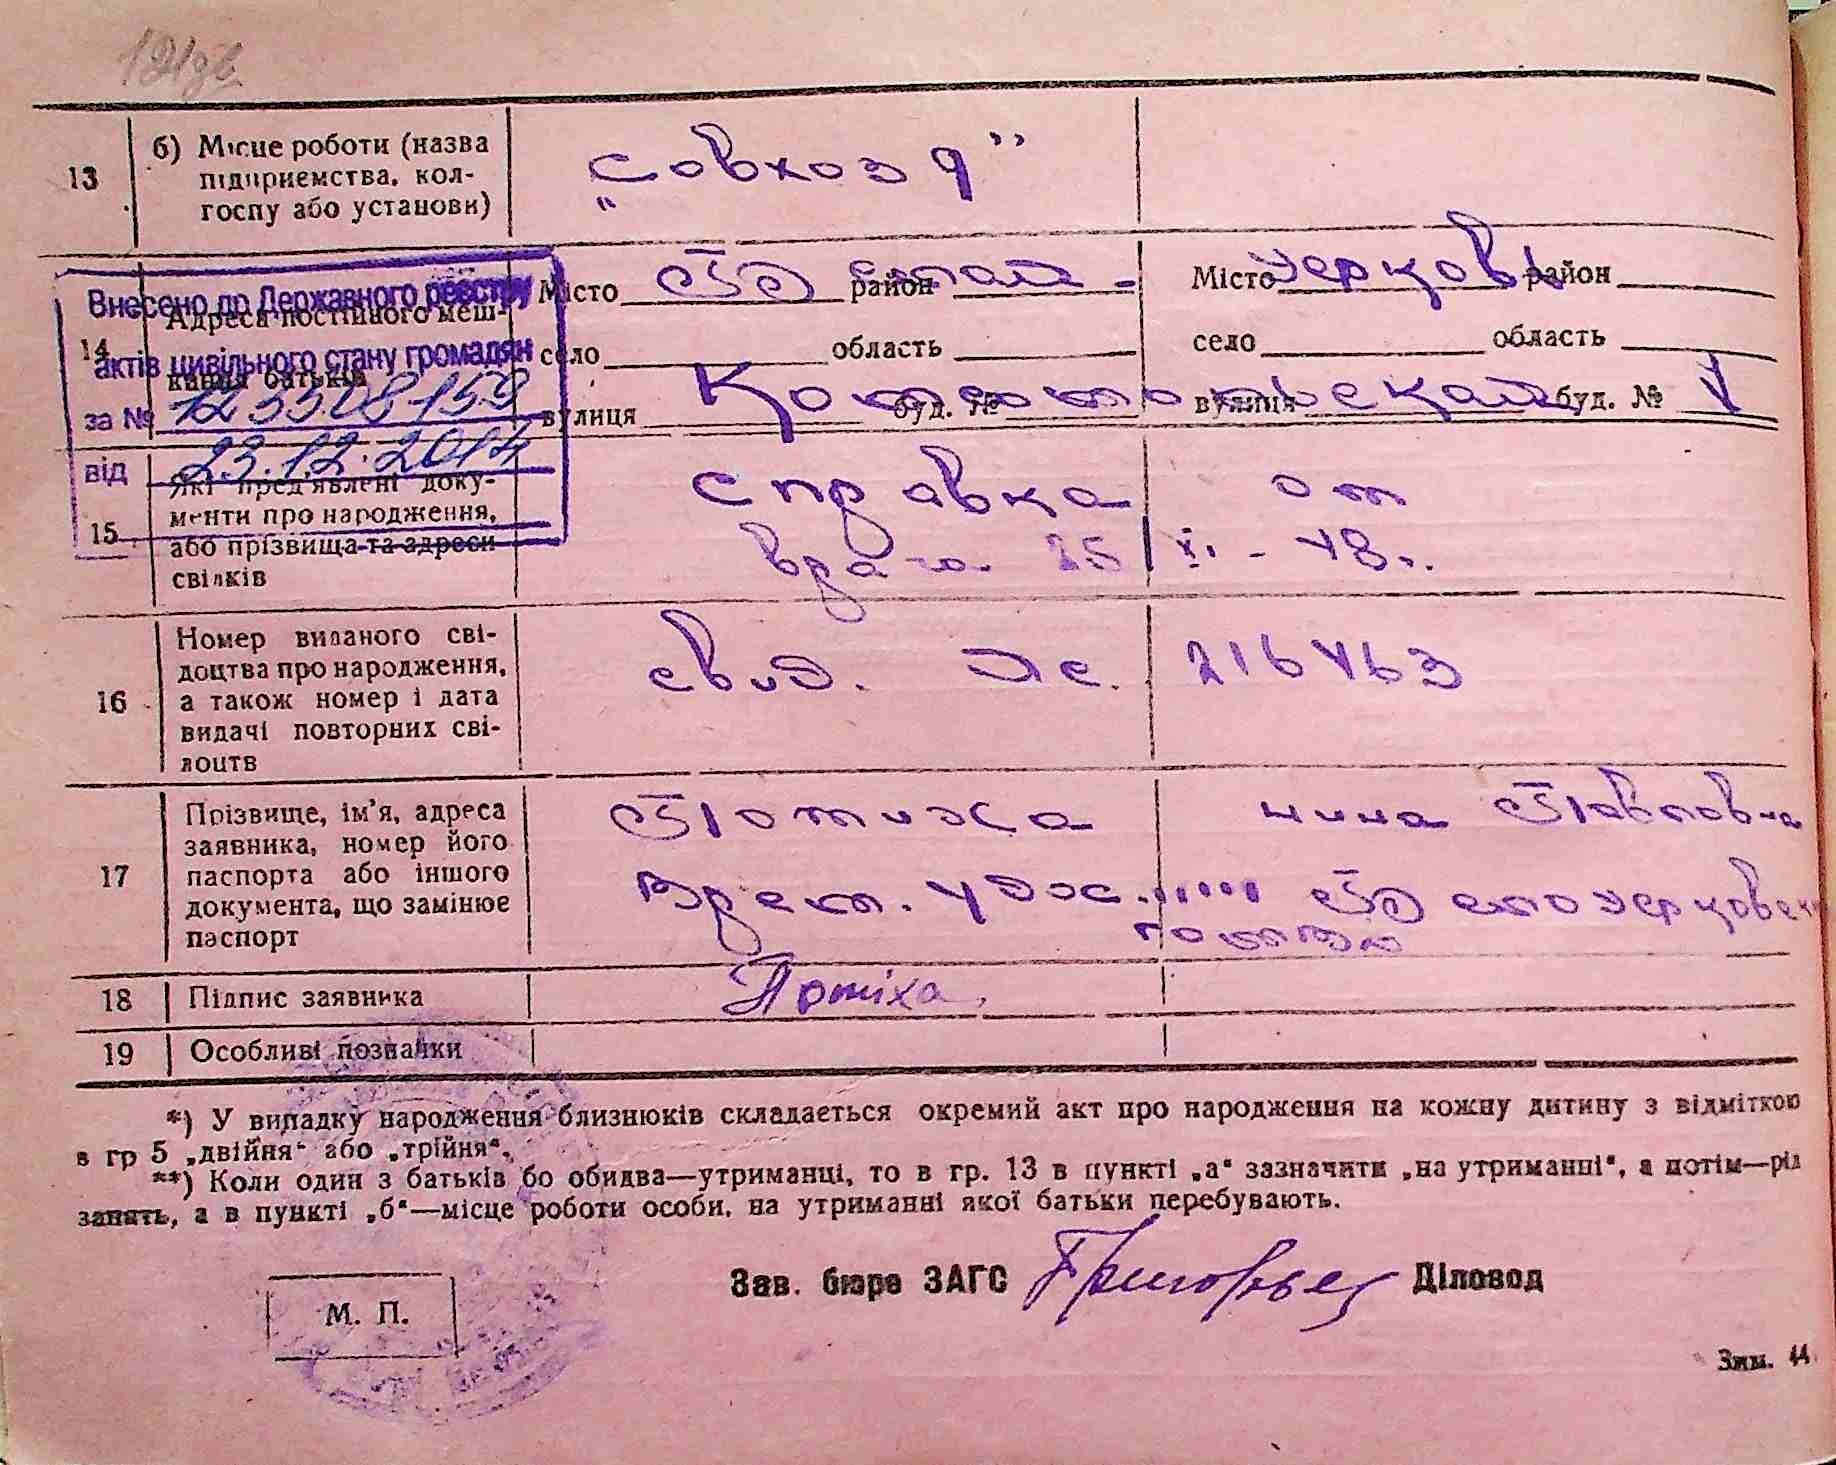 13 б) Місце роботи (назва
підприємства, кол-
госпу або установи)
„Совхоз 9”
Внесено до Державного реєстру
актів цивільного стану громадян
за №
від 23.12.2014
14 Адреса постійного меш-
кання батьків
Місто район
село область
вулиця буд. №
Місто район
село область
вулиця буд. №
15 Які пред'явлені доку-
менти про народження,
або прізвища та адреси
свідків
Справка от
врача 25/XI - 48 г.
16 Номер виданого сві-
доцтва про народження,
а також номер і дата
видачі повторних сві-
доцтв
свид. 216463
17 Прізвище, ім'я, адреса
заявника, номер його
паспорта або іншого
документа, що замінює
паспорт
Потиха Нина Павловна
Врем. удос.
18 Підпис заявника Потіха
19 Особливі позначки
*) У випадку народження близнюків складається окремий акт про народження на кожну дитину з відміткою
в гр 5 „двійня“ або „трійня“.
**) Коли один з батьків бо обидва—утриманці, то в гр. 13 в пункті „а“ зазначити „на утриманні“, а потім—рід
занять, а в пункті „б“—місце роботи особи, на утриманні якої батьки перебувають.
Зав. бюро ЗАГС Діловод
М. П.
Зам. 44